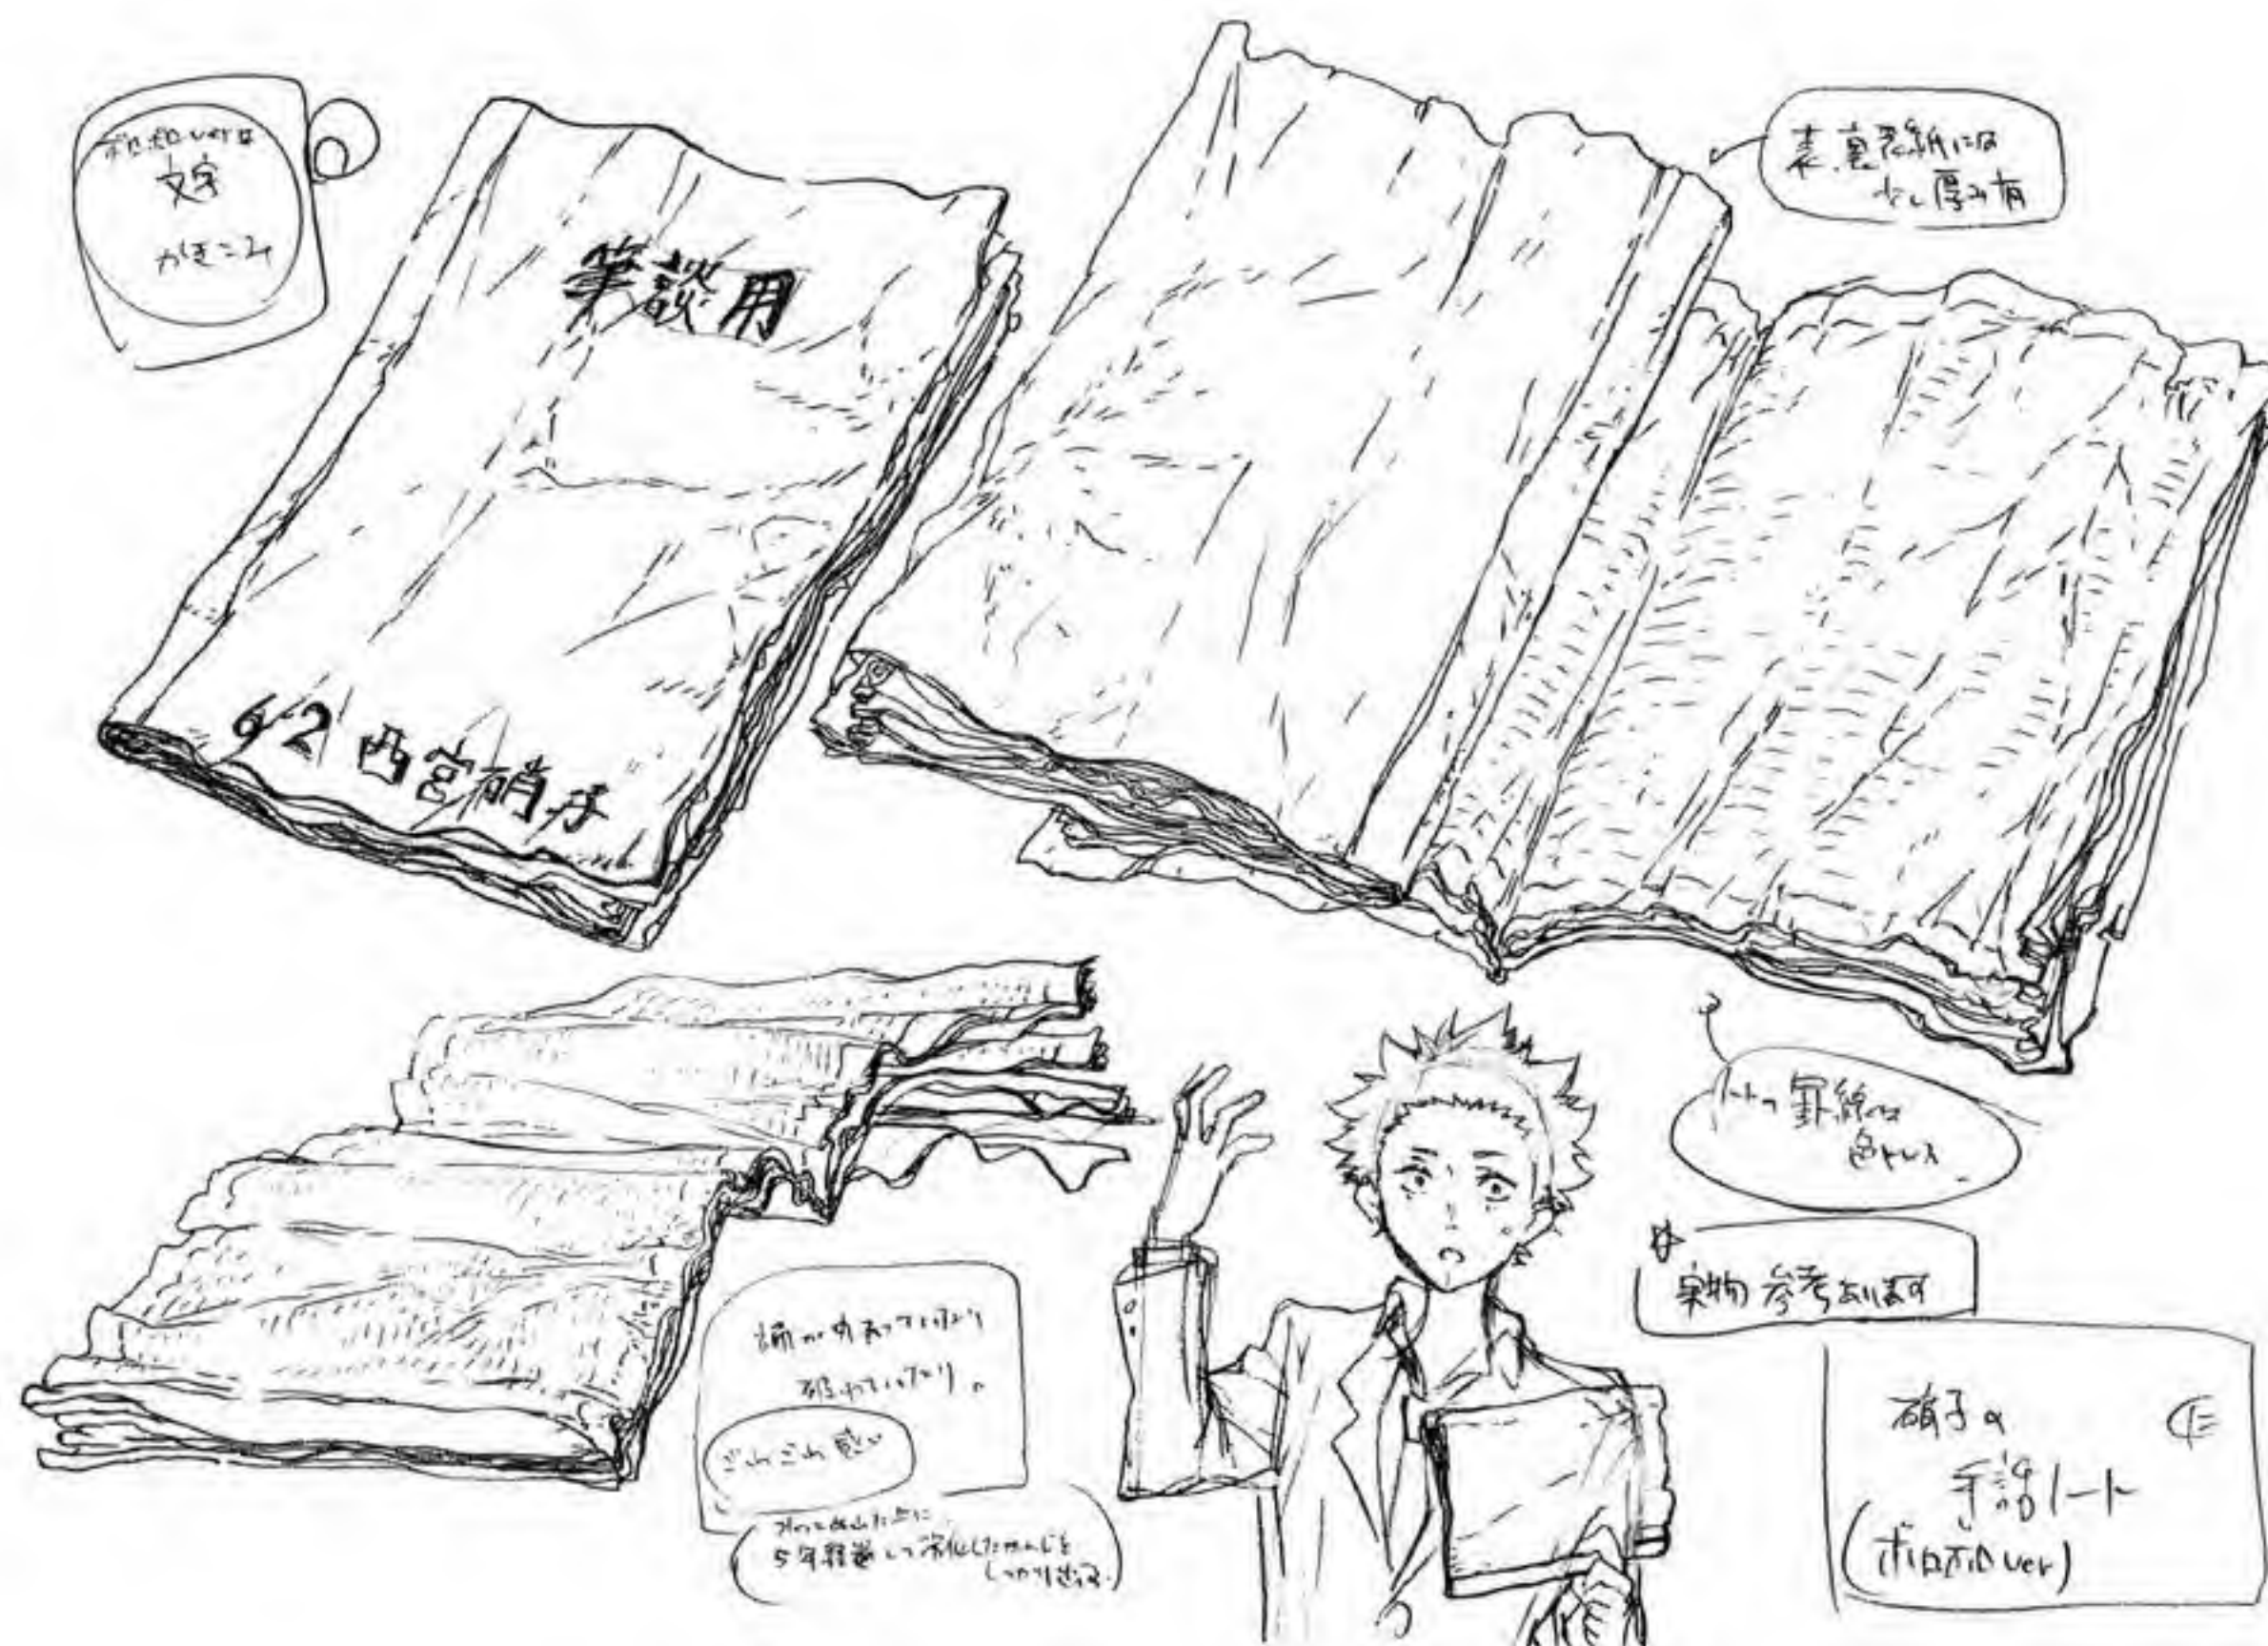 ボロボロverは
文字
かきこみ
筆談用
6/2 西宮硝子
表、裏表紙には
少し厚み有
ノートの罫線は
色トレス
実物参考あります
端が折れていたり
破れていたり。
ごわごわ感
5年経過して劣化したかんじを
硝子の
手話ノート
(ボロボロver)